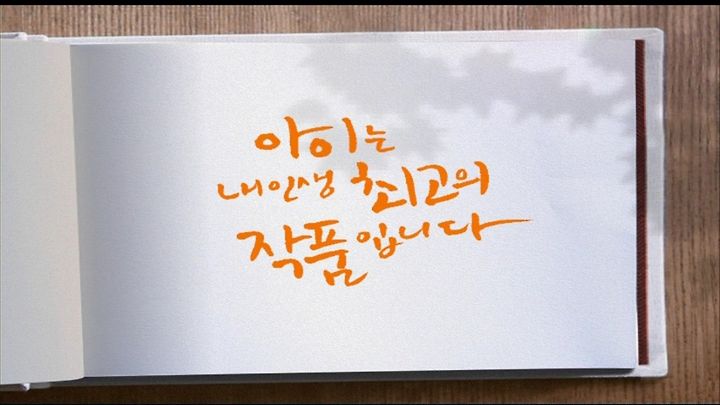 아이는
내 인생 최고의
작품입니다